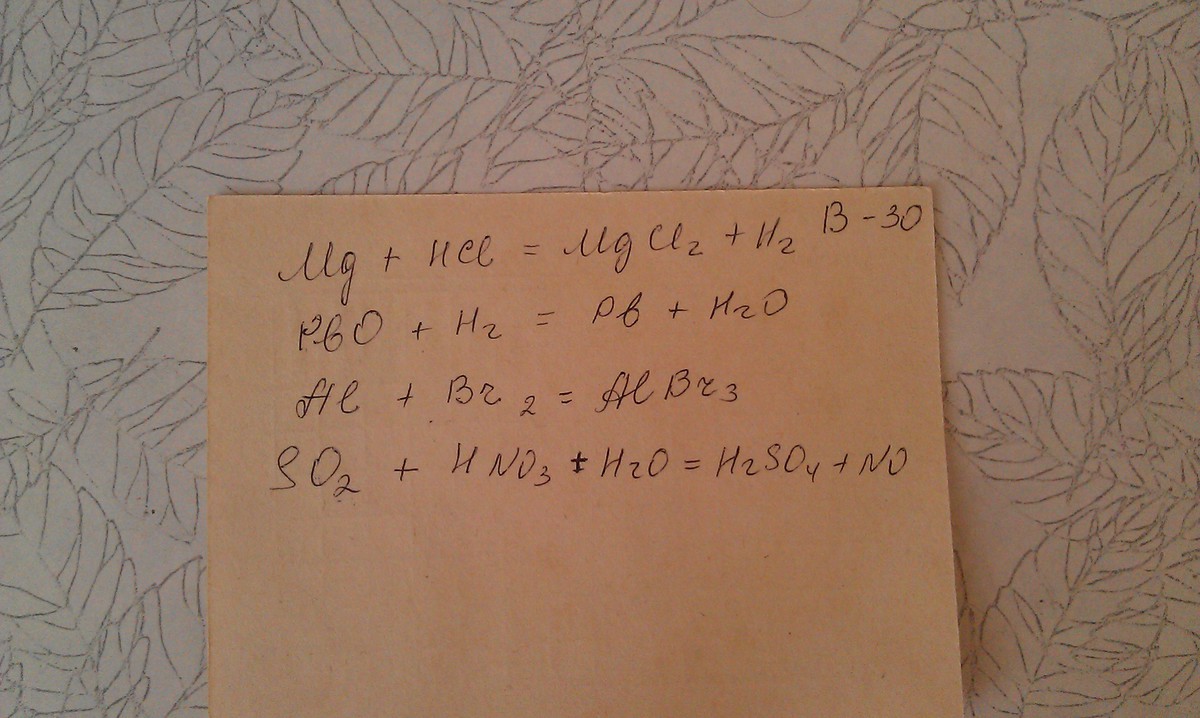 В-30
Mg + HCl = MgCl₂ + H₂
PbO + H₂ = Pb + H₂O
Al + Br₂ = AlBr₃
SO₂ + HNO₃ + H₂O = H₂SO₄ + NO